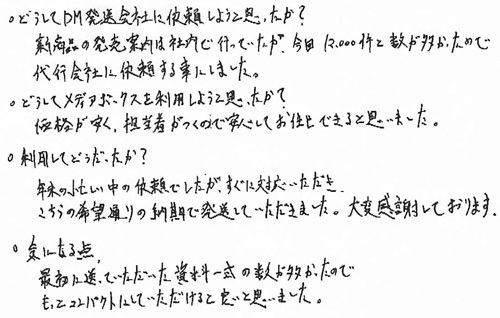 ○どうしてDM発送会社に依頼しようと思ったか?
新商品の発売案内は社内で行っていたが、今回12,000件と数が多かったので
代行会社に依頼する事にしました。
○どうしてメディアボックスを利用しようと思ったか?
価格が安く、担当者がつくので安心してお任せできると思いました。
○利用してどうだったか?
年末の忙しい中の依頼でしたが、すぐに対応いただき、
こちらの希望通りの納期で発送していただきました。大変感謝しております。
○気になる点、
最初に送っていただいた資料一式の数が多かったので
もっとコンパクトにしていただけると良いと思いました。